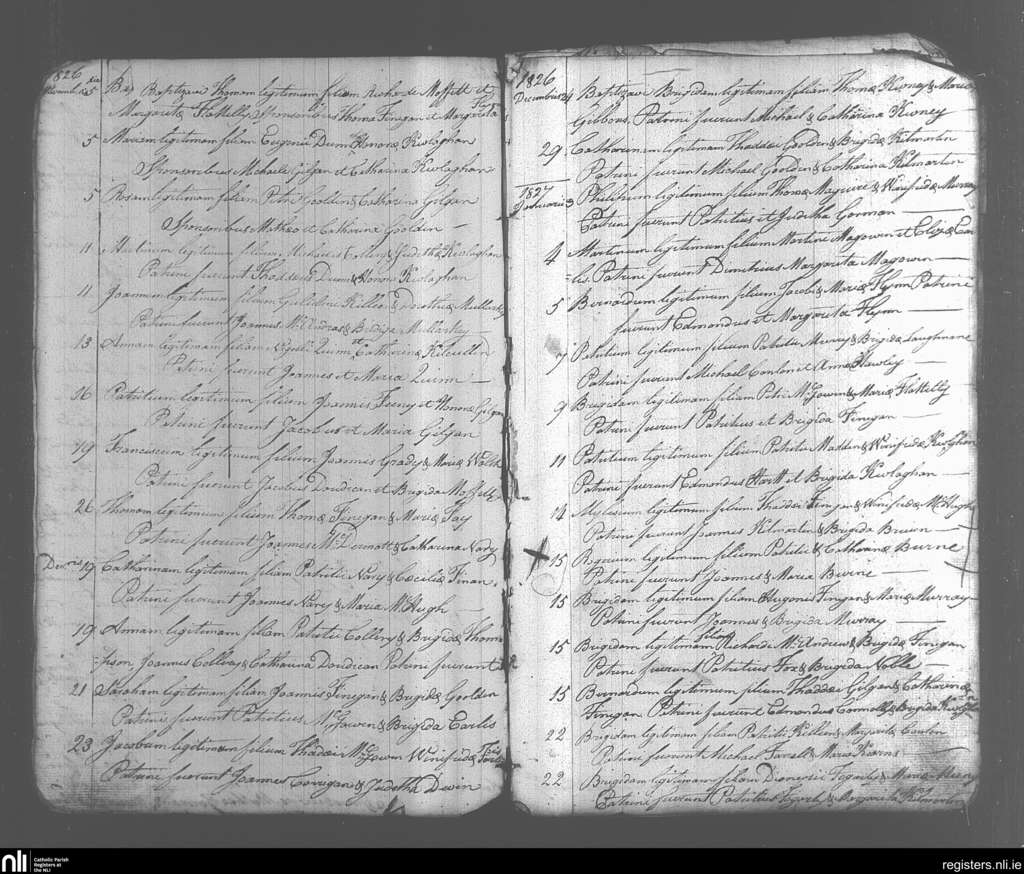 1826
Novembris die 5 Baptizavi Thomam legitimum filium Richardi Moffett et
Margarita Flattelly, Sponsoribus Thoma Finigan et Margarita Flyn
5 Mariam legitimam filiam Eugenii Dunn & Honora Kivlaghan
Sponsoribus Michaele Gilgan et Catharina Kivlaghan
5 Rosam legitimam filiam Petri Goolden & Catharina Gilgan
Sponsoribus Matheo et Catharina Goolden —
11 legitimum filium Michaelis & Judith Kivlaghan
Patrini fuerunt Thaddeus Dunn & Honora Kivlaghan
11 Joannem legitimum filium Gulielmi Killea & Dorothea Mullarky
Patrini fuerunt Joannes McAndrus & Brigida Mullarkey —
13 Annam legitimam filiam Quinn et Catharina Kilcullin
Patrini fuerunt Joannes et Maria Quinn —
16 Patritium legitimum filium Joannis Feeny et Honora Gilgan
Patrini fuerunt Jacobus et Maria Gilgan
19 Franciscum legitimum filium Joannis Grady & Maria Walsh
Patrini fuerunt Jacobus Doudican et Brigida Moffett
26 Thomam legitimum filium Thoma Finigan & Maria Fay
Patrini fuerunt Joannes McDermott & Catharina Nary
Decembris 17 Catharinam legitimam filiam Patritii Nary & Cecilia Finan
Patrini fuerunt Joannes Nary & Maria McHugh —
19 Annam legitimam filiam Patritii Collery & Brigida Thom
pson, Joannes Collery & Catharina Doudican Patrini fuerunt
21 Saraham legitimam filiam Joannis Finegan & Brigida Goolden
Patrini fuerunt Patritius McGowen & Brigida Earls
23 Jacobum legitimum filium Thadaei McGowen Winifrida
Patrini fuerunt Joannes Corrigan & Judetha Devin
1826
Decembris 24 Baptizavi Brigidam legitimam filiam Thoma Kivney & Maria
Gibbons. Patrini fuerunt Michael & Catharina Kivney
29 Catharinam legitimam Thaddei Goolden & Brigida Kilmartin
Patrini fuerunt Michael Goolden & Catharina Kilmartin
1827
Januarii 3 Philipum legitimum filium Thoma Maguire & Winifrida Murray
Patrini fuerunt Patritius et Judetha Gorman —
4 Martinum legitimum filium Martini Magowen et Eliza Con
lis. Patrini fuerunt Dimitrius Margarita Magowen —
5 Bernardum legitimum filium Jacobi & Maria Flynn Patrini
fuerunt Edmondus et Margarita Flynn —
7 Patritium legitimum filium Patritii Murry & Brigida Laughnane
Patrini fuerunt Michael Conlon et Anna Hawley —
9 Brigidam legitimam filiam Petri McGowen & Maria Flattelly
Patrini fuerunt Patritius et Brigida Finegan —
11 Patritium legitimum filium Patritii Madden & Winifrida Kivlghan
Patrini fuerunt Edmondus Hart et Brigida Kivlaghan —
14 Mylesium legitimum filium Thaddei Finegan & Winifrida McHugh
Patrini fuerunt Joannes Kilmartin & Brigida Bruen —
15 Rogerium legitimum filium Patritii & Catharina Burne
Patrini fuerunt Joannes & Maria Burne —
15 Brigidam legitimam filiam Hugonis Finegan & Maria Murray
Patrini fuerunt Joannes & Brigida Murray —
15 Brigidam legitimam filiam Richardi McAndrew & Brigida Finegan
Patrini fuerunt Patritius Fox & Brigida Nolle —
15 Bernardum legitimum filium Thaddei Gilgan & Catharina
Finigan Patrini fuerunt Edmondus Connolly & Brigida Kivlaghan
22 Brigidam legitimam filiam Patritii Killen & Margarita Conlon
Patrini fuerunt Michael Farrell & Maria Kearns —
22 Brigidam legitimam filiam Dionesii Fogarty & Maria Meeny
Patrini fuerunt Patritius Fogarty & Margarita Kilmartin
nli Catholic Parish
Registers at
the NLI
registers.nli.ie